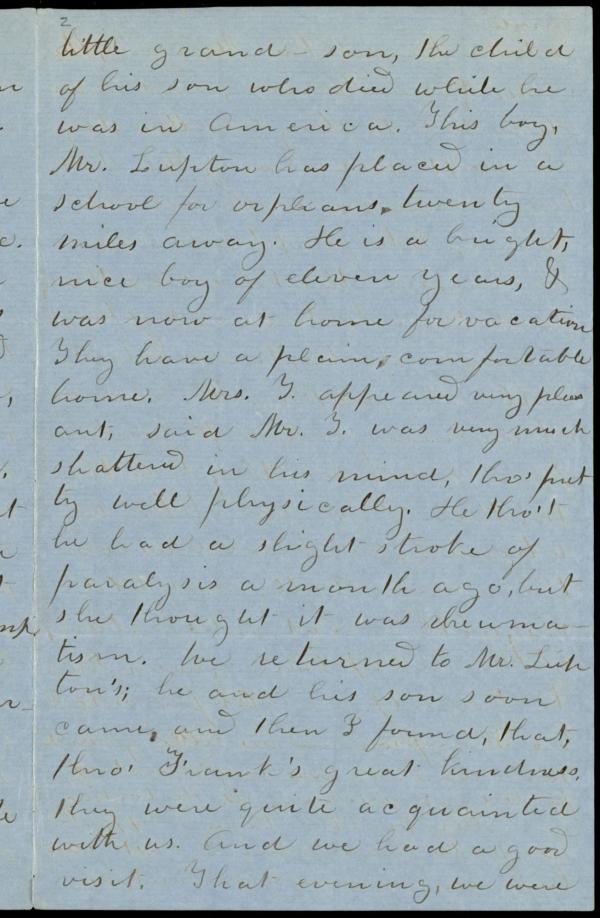 2
little grand-son, the child
of his son who died while he
was in America. This boy,
Mr. Lupton has placed in a
school for orphans, twenty
miles away. He is a bright,
nice boy of eleven years, &
was now at home for vacation
They have a plain, comfortable
home. Mrs. T. appeared very pleas
ant, said Mr. T. was very much
shattered in his mind, tho' pret
ty well physically. He tho't
he had a slight stroke of
paralysis a month ago, but
she thought it was rheuma-
tism. We returned to Mr. Lup
ton's; he and his son soon
came, and then I found, that,
thro' Frank's great kindness,
they were quite acquainted
with us. And we had a good
visit. That evening, we were